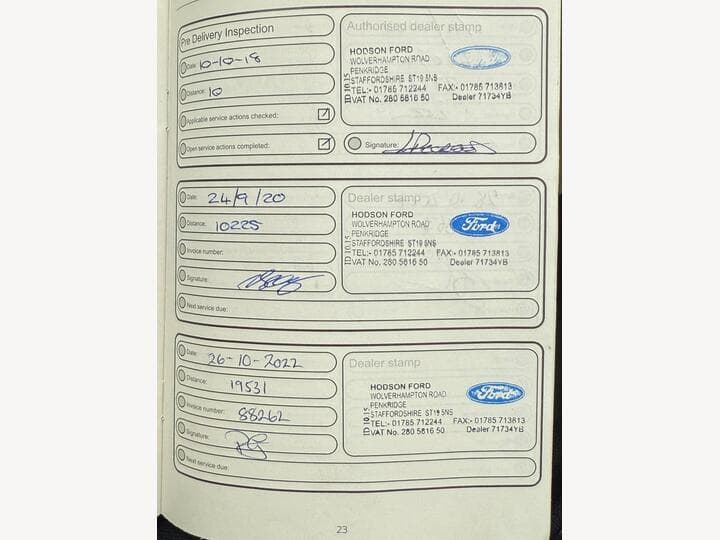 Pre Delivery Inspection
Date: 10-10-18
Distance: 10
Applicable service actions checked:
Open service actions completed:
Authorised dealer stamp
HODSON FORD
WOLVERHAMPTON ROAD
PENKRIDGE
STAFFORDSHIRE ST19 5NS
TEL:- 01785 712244 FAX:- 01785 713813
VAT No. 280 5816 50 Dealer 71734YB
ID 10.15
Signature:
Date: 24/9/20
Distance: 10225
Invoice number:
Signature:
Next service due:
Dealer stamp
HODSON FORD
WOLVERHAMPTON ROAD
PENKRIDGE
STAFFORDSHIRE ST19 5NS
TEL:- 01785 712244 FAX:- 01785 713813
VAT No. 280 5816 50 Dealer 71734YB
ID 10.15
Ford
Date: 26-10-2022
Distance: 19531
Invoice number: 88262
Signature:
Next service due:
Dealer stamp
HODSON FORD
WOLVERHAMPTON ROAD
PENKRIDGE
STAFFORDSHIRE ST19 5NS
TEL:- 01785 712244 FAX:- 01785 713813
VAT No. 280 5816 50 Dealer 71734YB
ID 10.15
Ford
23